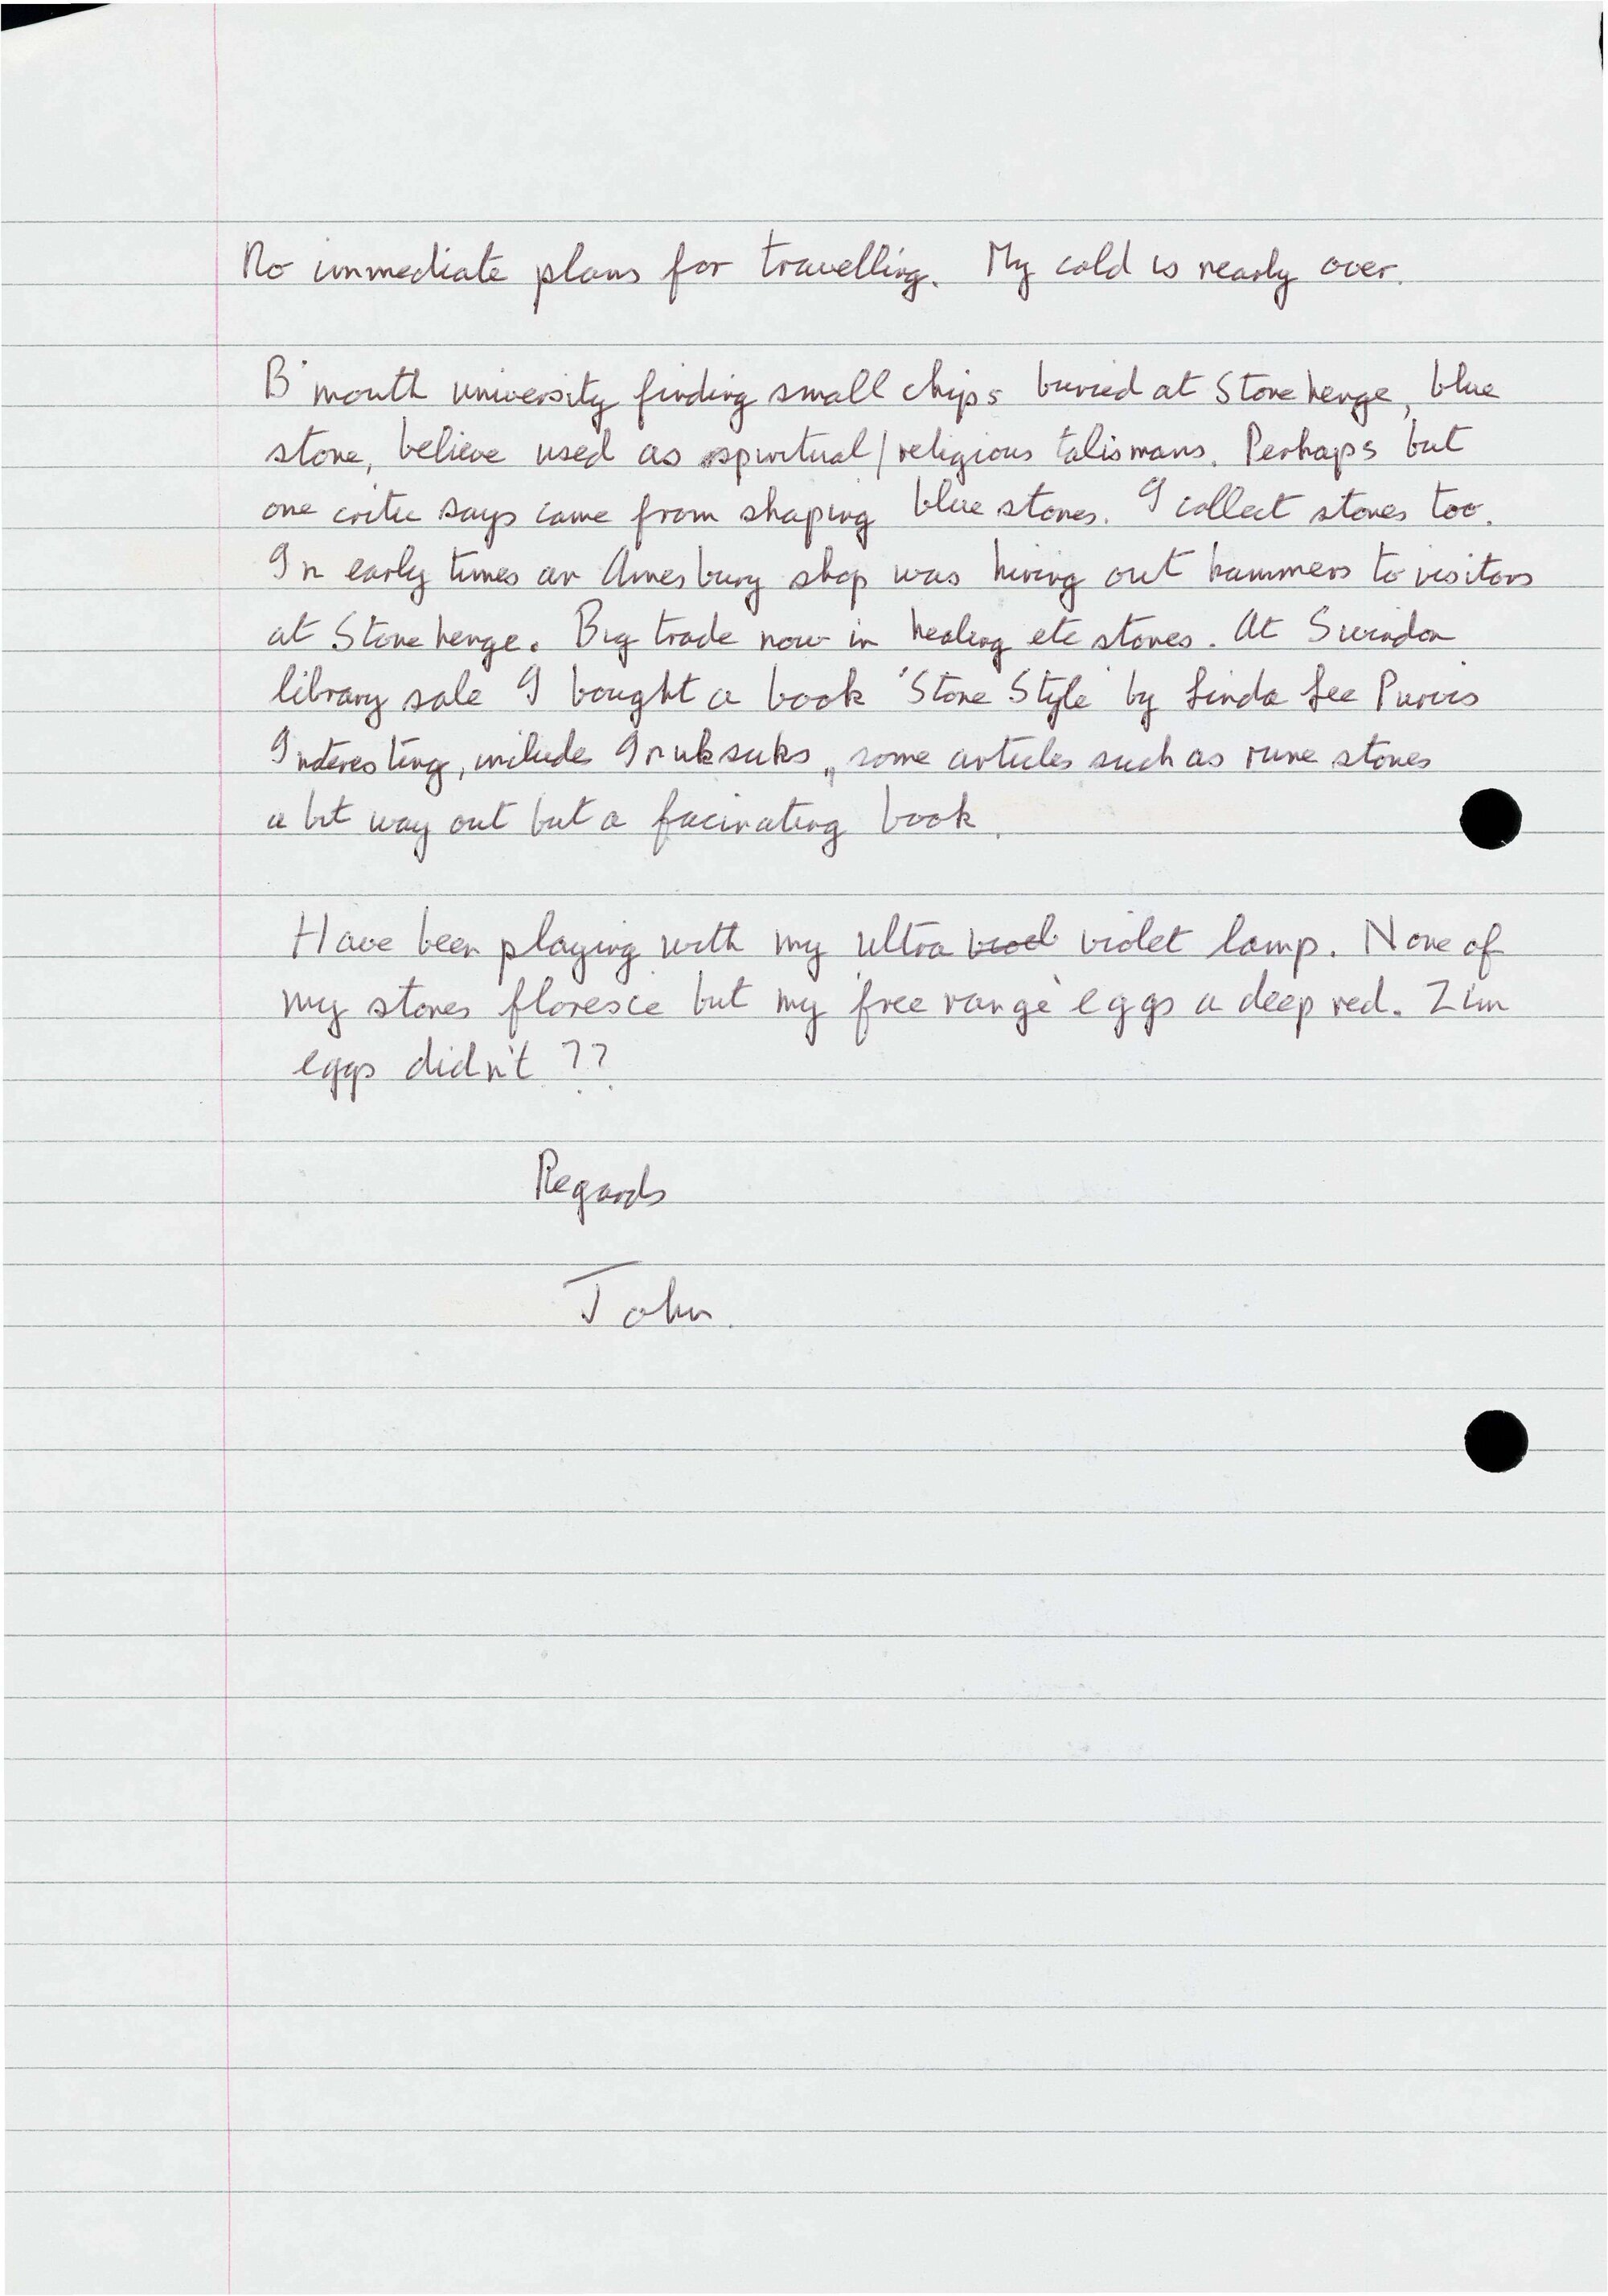 No immediate plans for travelling. My cold is nearly over.
B'mouth university finding small chips buried at Stonehenge, blue
stone, believe used as spiritual/religious talismans. Perhaps but
one critic says came from shaping blue stones. I collect stones too.
In early times an Amesbury shop was hiring out hammers to visitors
at Stonehenge. Big trade now in healing etc stones. At Swindon
library sale I bought a book 'Stone Style' by Linda Lee Purvis
Interesting, includes Inuksuks, some articles such as rune stones
a bit way out but a facinating book.
Have been playing with my ultra violet lamp. None of
my stones floresce but my 'free range' eggs a deep red. Zim
eggs didn't ??
Regards
John.